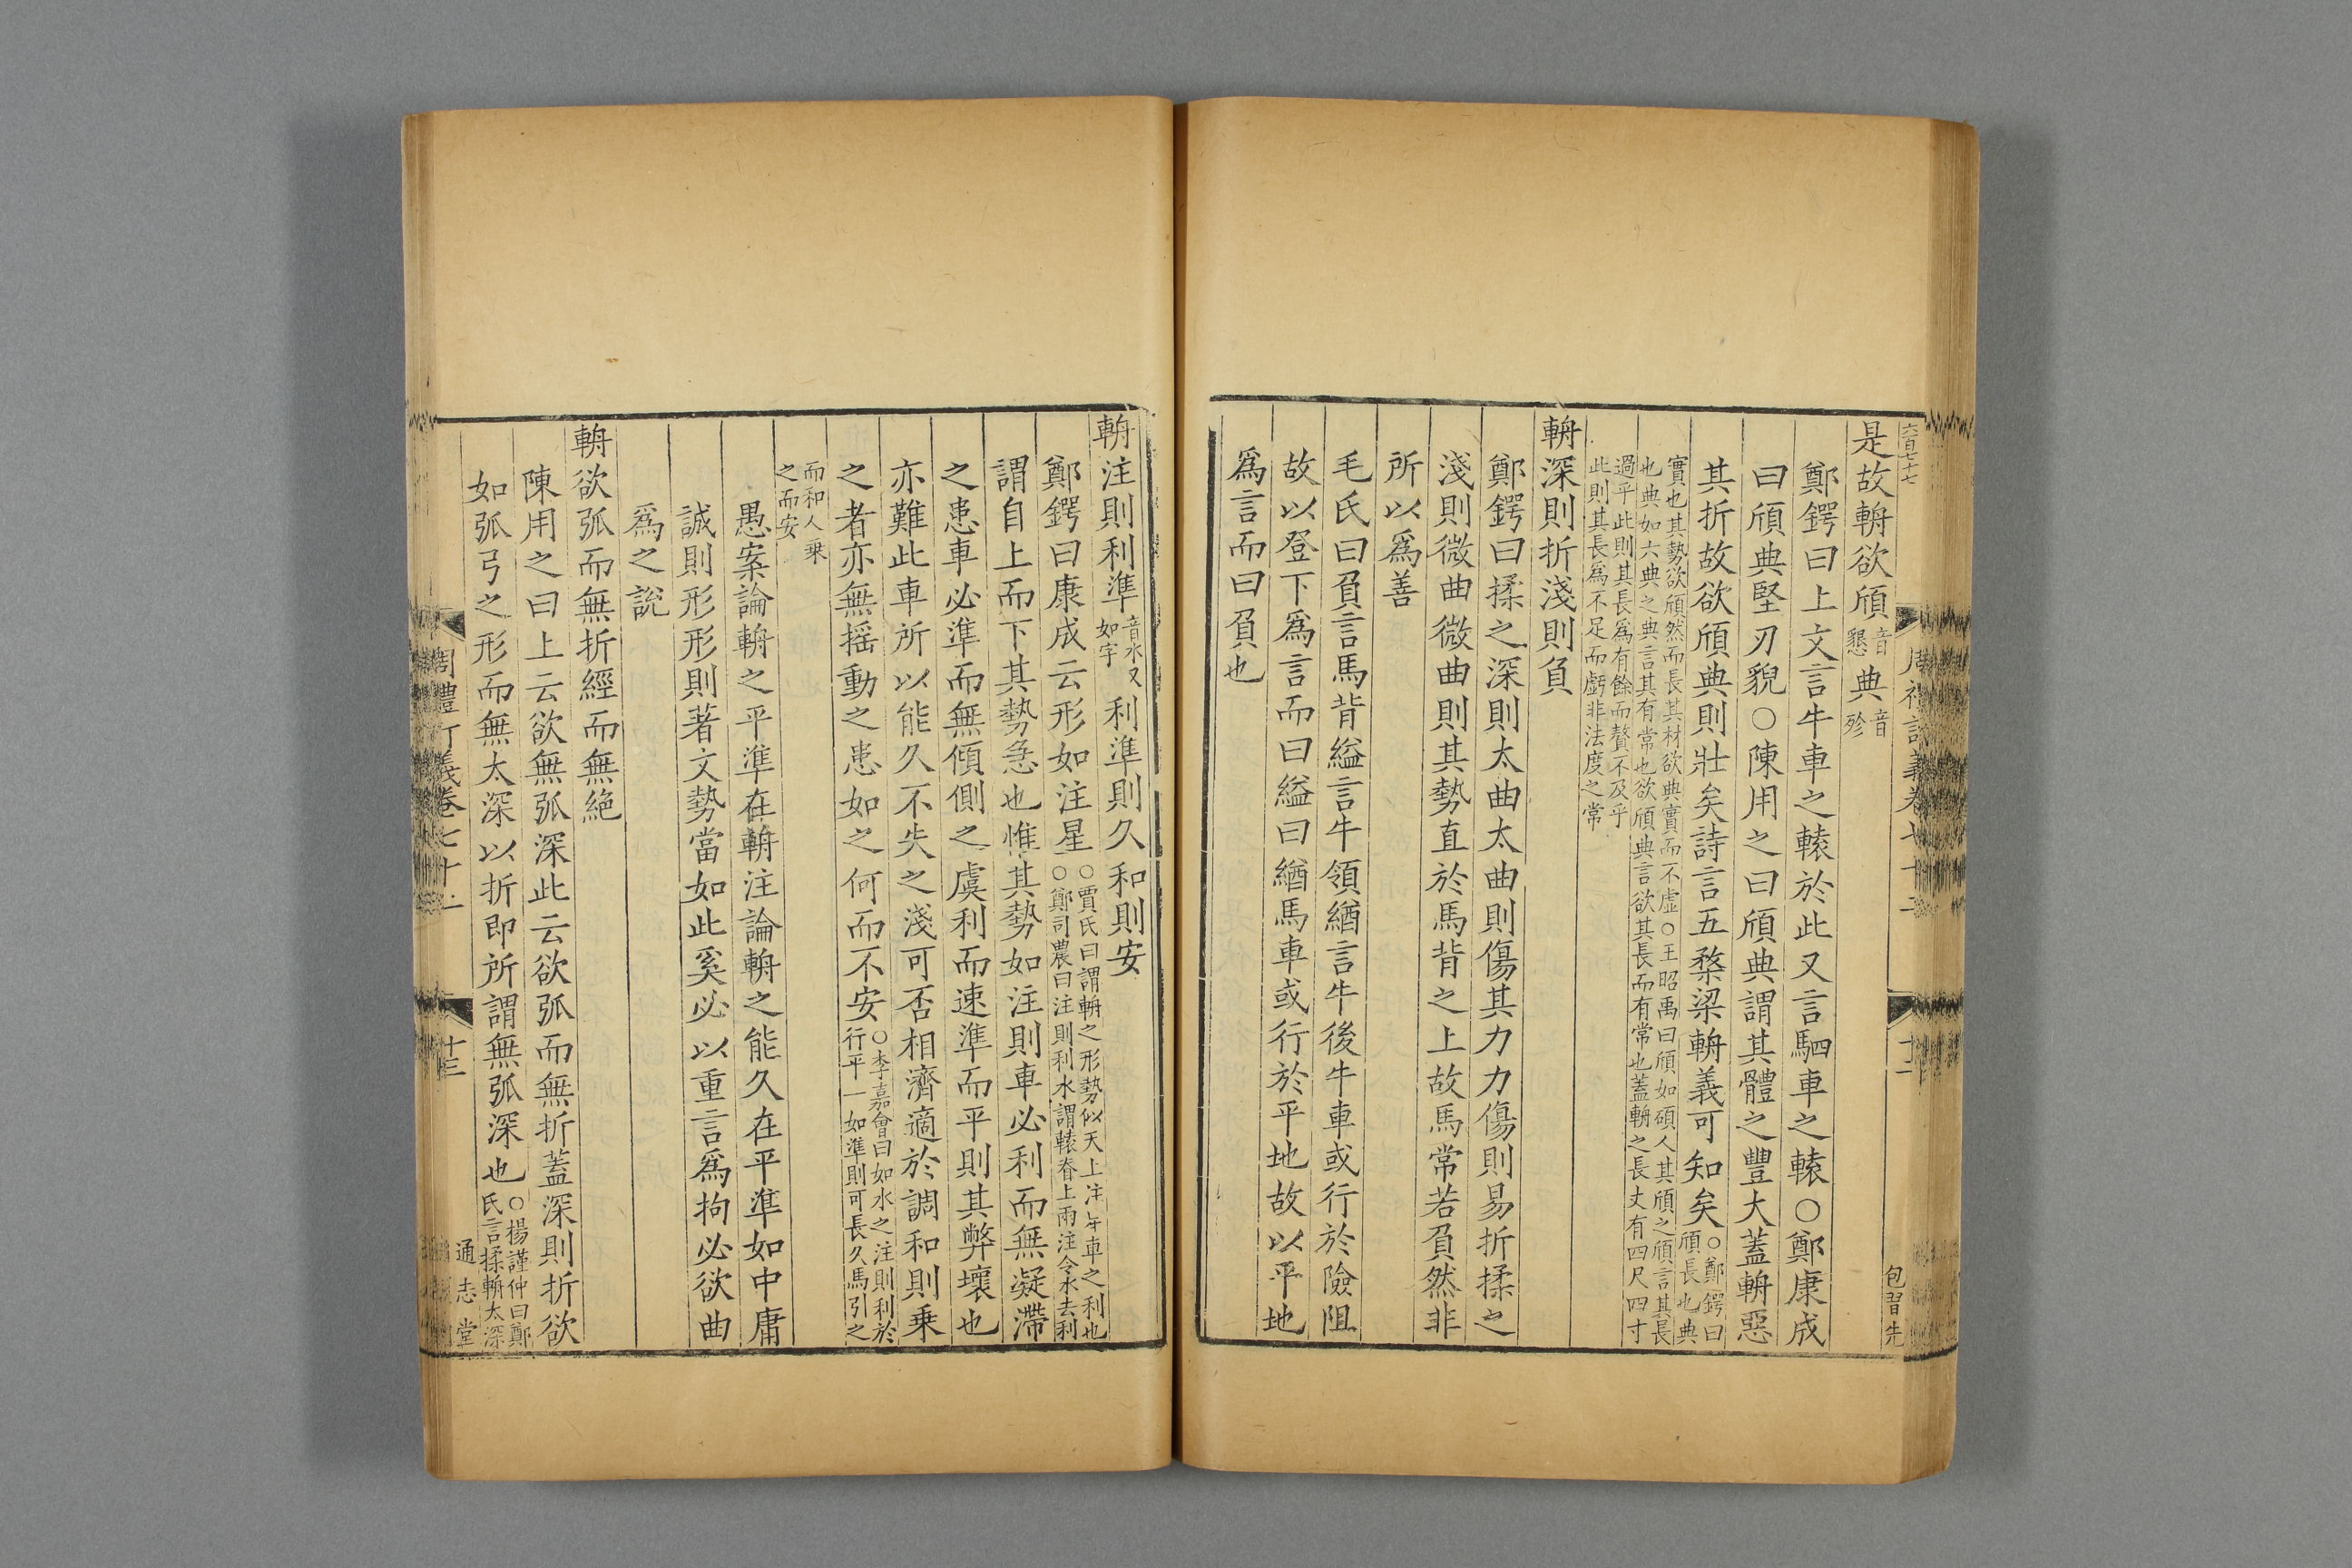 六百七十七
是故輈欲頎音懇典音殄
鄭鍔曰上文言牛車之轅於此又言駟車之轅○鄭康成
曰頎典堅刃貌○陳用之曰頎典謂其體之豐大蓋輈惡
其折故欲頎典則壯矣詩言五楘梁輈義可知矣○鄭鍔曰頎長也典
實也其勢欲頎然而長其材欲典實而不虛○王昭禹曰頎如碩人其頎之頎言其長
也典如六典之典言其有常也欲頎典言欲其長而有常也蓋輈之長丈有四尺四寸
過乎此則其長爲有餘而贅不及乎
此則其長爲不足而虧非法度之常
輈深則折淺則負
鄭鍔曰揉之深則太曲太曲則傷其力力傷則易折揉之
淺則微曲微曲則其勢直於馬背之上故馬常若負然非
所以爲善
毛氏曰負言馬背縊言牛領緧言牛後牛車或行於險阻
故以登下爲言而曰縊曰緧馬車或行於平地故以平地
爲言而曰負也
周禮訂義卷七十二
十二
包習先
輈注則利準音水又如字利準則久和則安
鄭鍔曰康成云形如注星○賈氏曰謂輈之形勢似天上注星車之利也○鄭司農曰注則利水謂轅脊上雨注令水去利
謂自上而下其勢急也惟其勢如注則車必利而無凝滯
之患車必準而無傾側之虞利而速準而平則其弊壞也
亦難此車所以能久不失之淺可否相濟適於調和則乗
之者亦無揺動之患如之何而不安○李嘉會曰如水之注則利於行平一如準則可長久馬引之
而和人乗
之而安
愚案論輈之平準在輈注論輈之能久在平準如中庸
誠則形形則著文勢當如此奚必以重言爲拘必欲曲
爲之說
輈欲弧而無折經而無絶
陳用之曰上云欲無弧深此云欲弧而無折蓋深則折欲
如弧弓之形而無太深以折即所謂無弧深也○楊謹仲曰鄭氏言揉輈太深
周禮訂義卷七十二
十三
通志堂